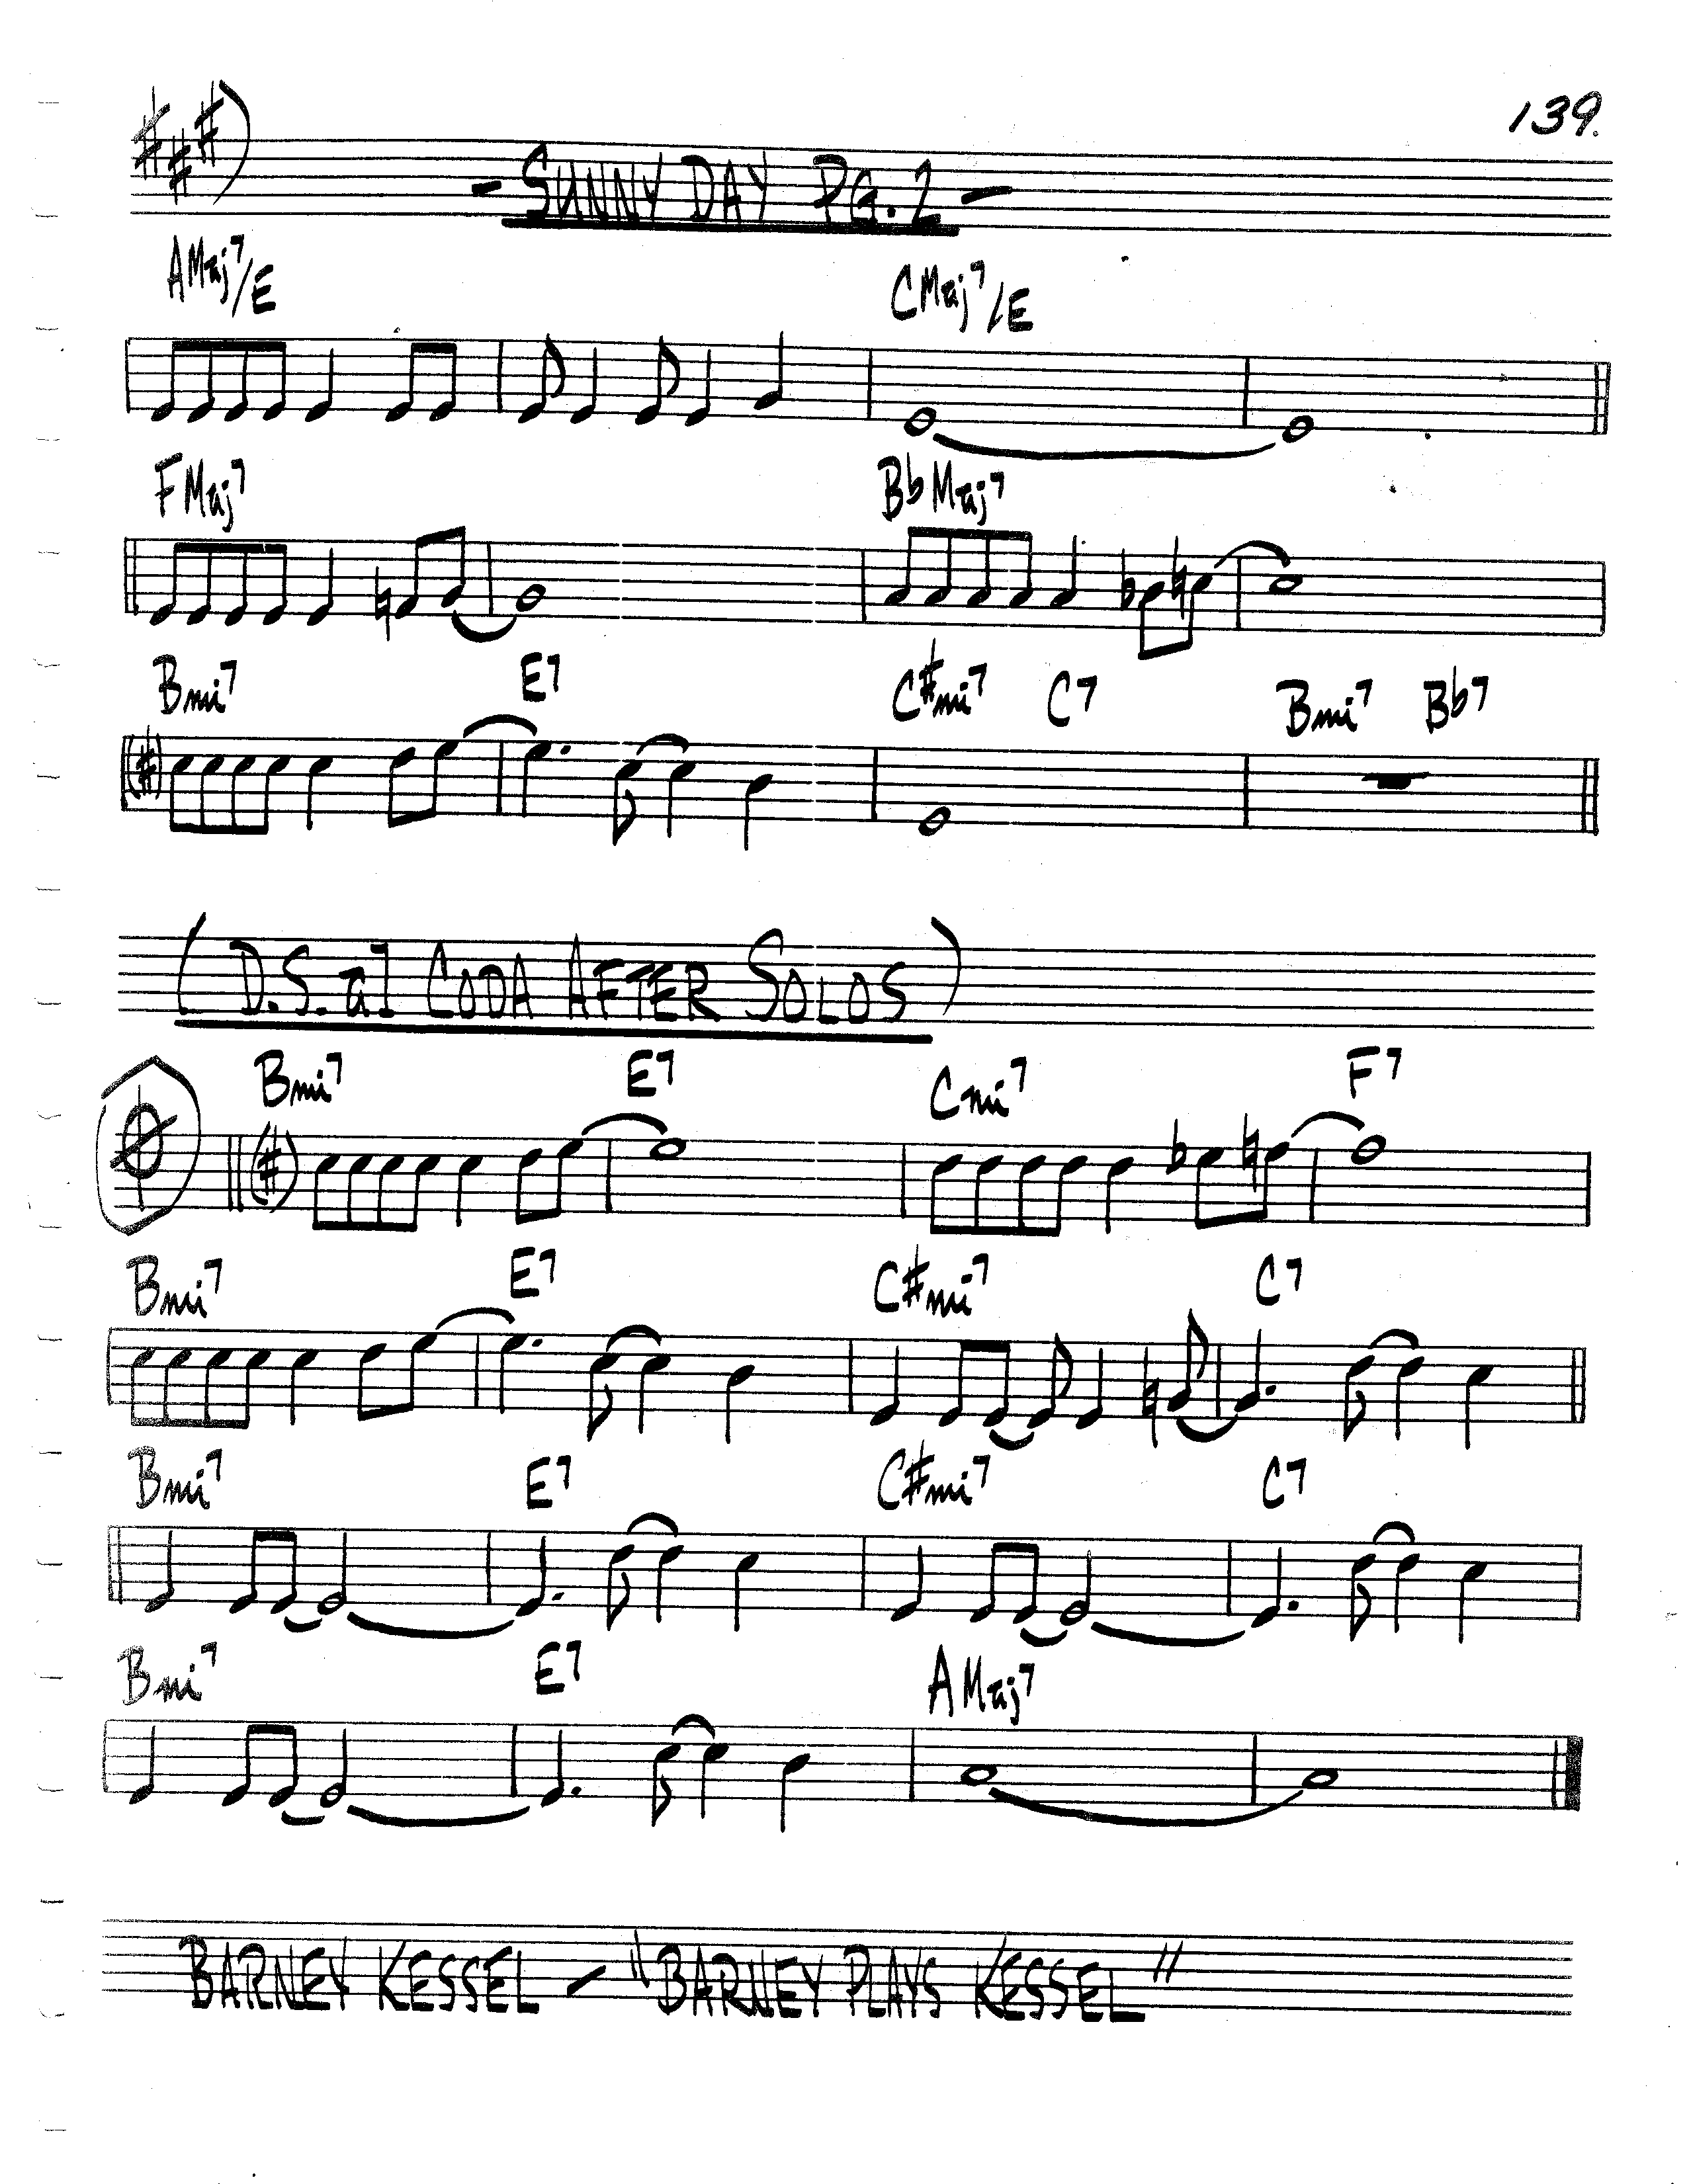 139.
- SUNNY DAY PG. 2 -
AMaj7/E CMaj7/E
FMaj7 BbMaj7
Bmi7 E7 C#mi7 C7 Bmi7 Bb7
( D.S. al CODA AFTER SOLOS )
Bmi7 E7 Cmi7 F7
Bmi7 E7 C#mi7 C7
Bmi7 E7 C#mi7 C7
Bmi7 E7 AMaj7
BARNEY KESSEL - "BARNEY PLAYS KESSEL"